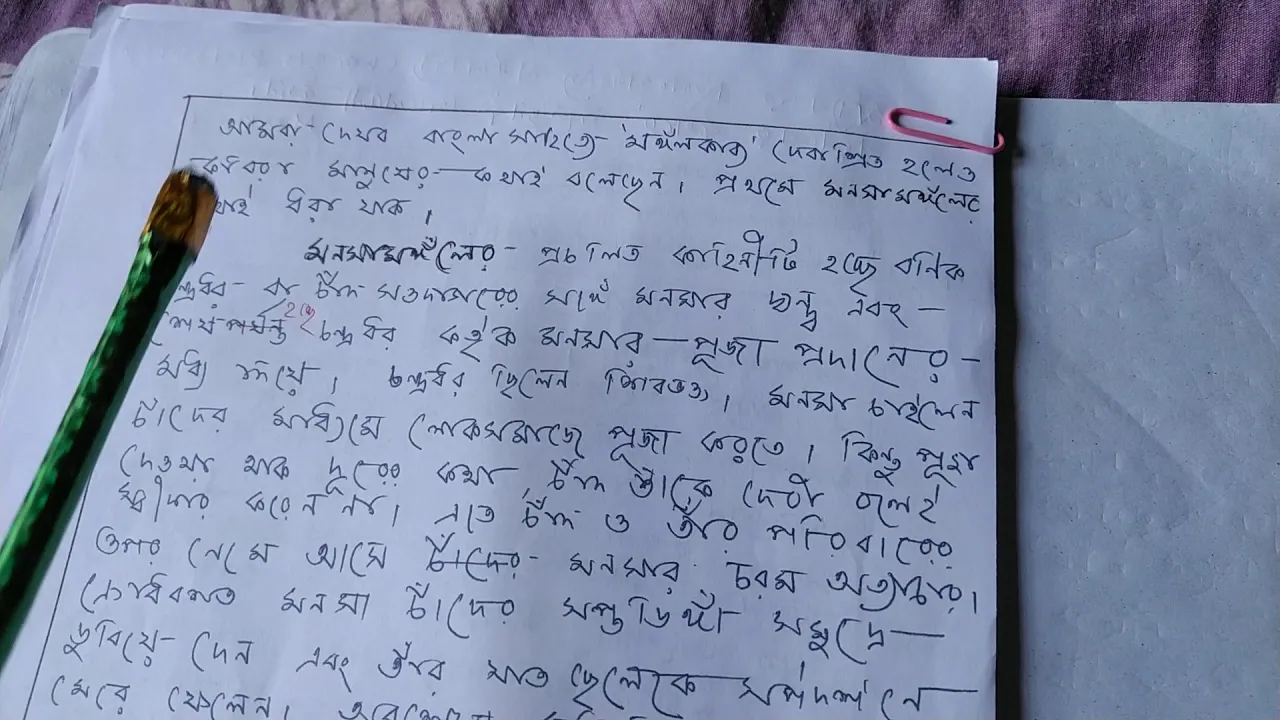 আমরা দেখব বাংলা সাহিত্যে 'মঙ্গলকাব্য' দেবাশ্রিত হলেও
কবিরা মানুষের কথাই বলেছেন। প্রথমে মনসামঙ্গলের
ধরা যাক।
মনসামঙ্গলের প্রচলিত কাহিনীটি হচ্ছে বনিক
বা চাঁদ সওদাগরের সঙ্গে মনসার দ্বন্দ্ব এবং
শেষ পর্যন্ত চন্দ্রধর কর্তৃক মনসার পূজা প্রদানের
মধ্য দিয়ে। চন্দ্রধর ছিলেন শিবভক্ত, মনসা চাইলেন
চাঁদের মাধ্যমে লোকসমাজে পূজা করতে। কিন্তু পূজা
দেওয়া যাক দূরের কথা, চাঁদ তাঁকে দেবী বলেই
স্বীকার করেন না। এতে চাঁদ ও তাঁর পরিবারের
ওপর নেমে আসে চাঁদের মনসার চরম অত্যাচার।
ক্রোধবশত মনসা চাঁদের সপ্তডিঙ্গা সমুদ্রে
ডুবিয়ে দেন এবং তাঁর সাত ছেলেকে সর্পদংশনে
মেরে ফেলেন।